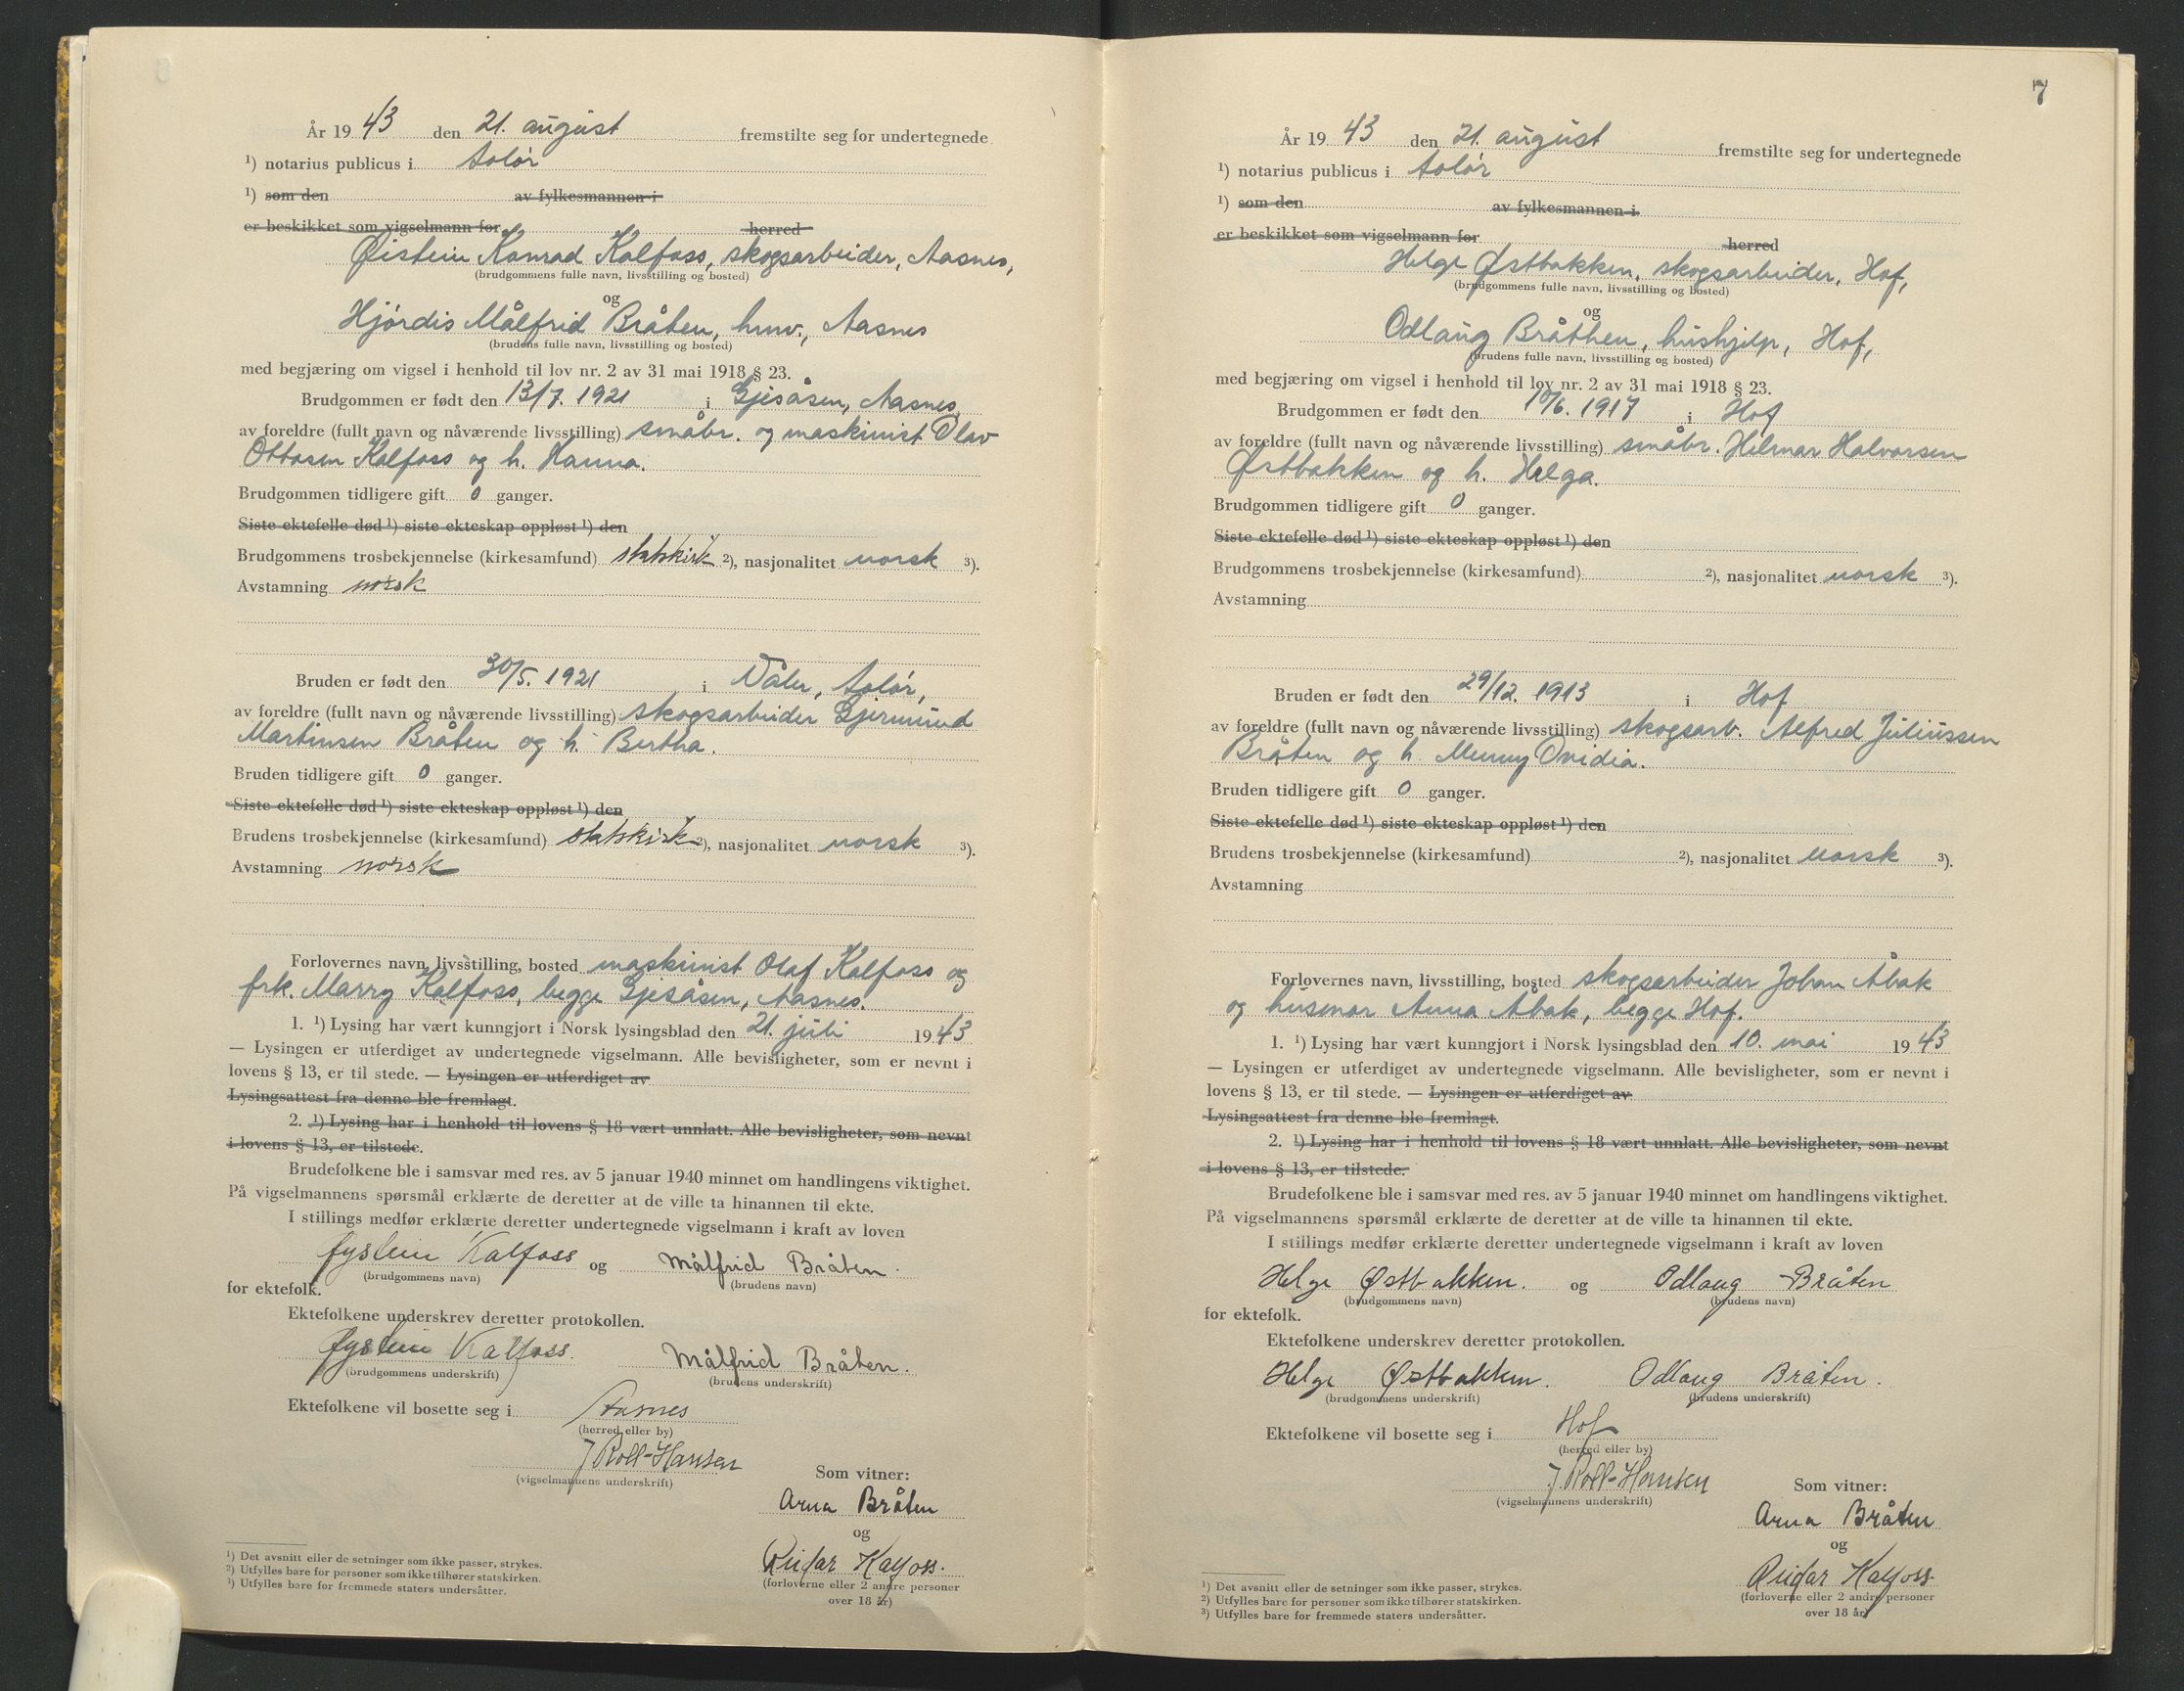 År 19 43 den 21. august fremstilte seg for undertegnede
¹) notarius publicus i Solør
¹) som den av fylkesmannen i
er beskikket som vigselmann for herred
Øistein Konrad Kalfoss, skogsarbeider, Aasnes,
(brudgommens fulle navn, livsstilling og bosted)
og
Hjørdis Målfrid Bråten, hmv., Aasnes
(brudens fulle navn, livsstilling og bosted)
med begjæring om vigsel i henhold til lov nr. 2 av 31 mai 1918 § 23.
Brudgommen er født den 13/7. 1921 i Gjesåsen, Aasnes,
av foreldre (fullt navn og nåværende livsstilling) småbr. og maskinist Olav
Ottosen Kalfoss og h. Hanna.
Brudgommen tidligere gift 0 ganger.
Siste ektefelle død ¹) siste ekteskap oppløst ¹) den
Brudgommens trosbekjennelse (kirkesamfund) statskirk ²), nasjonalitet norsk ³).
Avstamning norsk
Bruden er født den 30/5. 1921 i Våler, Solør,
av foreldre (fullt navn og nåværende livsstilling) skogsarbeider Gjermund
Martinsen Bråten og h. Bertha.
Bruden tidligere gift 0 ganger.
Siste ektefelle død ¹) siste ekteskap oppløst ¹) den
Brudens trosbekjennelse (kirkesamfund) statskirk ²), nasjonalitet norsk ³).
Avstamning norsk
Forlovernes navn, livsstilling, bosted maskinist Olaf Kalfoss og
frk. Marry Kalfoss, begge Gjesåsen, Aasnes.
1. ¹) Lysing har vært kunngjort i Norsk lysingsblad den 21. juli 19 43
— Lysingen er utferdiget av undertegnede vigselmann. Alle bevisligheter, som er nevnt i
lovens § 13, er til stede. — Lysingen er utferdiget av
Lysingsattest fra denne ble fremlagt.
2. ¹) Lysing har i henhold til lovens § 18 vært unnlatt. Alle bevisligheter, som nevnt
i lovens § 13, er tilstede.
Brudefolkene ble i samsvar med res. av 5 januar 1940 minnet om handlingens viktighet.
På vigselmannens spørsmål erklærte de deretter at de ville ta hinannen til ekte.
I stillings medfør erklærte deretter undertegnede vigselmann i kraft av loven
Øystein Kalfoss og Målfrid Bråten.
(brudgommens navn) (brudens navn)
for ektefolk.
Ektefolkene underskrev deretter protokollen.
Øystein Kalfoss. Målfrid Bråten.
(brudgommens underskrift) (brudens underskrift)
Ektefolkene vil bosette seg i Aasnes
(herred eller by)
J Roll-Hansen
(vigselmannens underskrift)
Som vitner:
Arna Bråten
og
Reidar Kalfoss.
(forloverne eller 2 andre personer
over 18 år)
¹) Det avsnitt eller de setninger som ikke passer, strykes.
²) Utfylles bare for personer som ikke tilhører statskirken.
³) Utfylles bare for fremmede staters undersåtter.
7
År 19 43 den 21. august fremstilte seg for undertegnede
¹) notarius publicus i Solør
¹) som den av fylkesmannen i
er beskikket som vigselmann for herred
Helge Østbakken, skogsarbeider, Hof,
(brudgommens fulle navn, livsstilling og bosted)
og
Odlaug Bråthen, hushjelp, Hof,
(brudens fulle navn, livsstilling og bosted)
med begjæring om vigsel i henhold til lov nr. 2 av 31 mai 1918 § 23.
Brudgommen er født den 10/6. 1917 i Hof
av foreldre (fullt navn og nåværende livsstilling) småbr. Hilmar Halvorsen
Østbakken og h. Helga.
Brudgommen tidligere gift 0 ganger.
Siste ektefelle død ¹) siste ekteskap oppløst ¹) den
Brudgommens trosbekjennelse (kirkesamfund) ²), nasjonalitet norsk ³).
Avstamning
Bruden er født den 29/12. 1913 i Hof
av foreldre (fullt navn og nåværende livsstilling) skogsarb. Alfred Juliussen
Bråten og h. Menny Ovidia.
Bruden tidligere gift 0 ganger.
Siste ektefelle død ¹) siste ekteskap oppløst ¹) den
Brudens trosbekjennelse (kirkesamfund) ²), nasjonalitet norsk ³).
Avstamning
Forlovernes navn, livsstilling, bosted skogsarbeider Johan Åbak
og husmor Anna Åbak, begge Hof.
1. ¹) Lysing har vært kunngjort i Norsk lysingsblad den 10. mai 19 43
— Lysingen er utferdiget av undertegnede vigselmann. Alle bevisligheter, som er nevnt i
lovens § 13, er til stede. — Lysingen er utferdiget av
Lysingsattest fra denne ble fremlagt.
2. ¹) Lysing har i henhold til lovens § 18 vært unnlatt. Alle bevisligheter, som nevnt
i lovens § 13, er tilstede.
Brudefolkene ble i samsvar med res. av 5 januar 1940 minnet om handlingens viktighet.
På vigselmannens spørsmål erklærte de deretter at de ville ta hinannen til ekte.
I stillings medfør erklærte deretter undertegnede vigselmann i kraft av loven
Helge Østbakken. og Odlaug Bråten
(brudgommens navn) (brudens navn)
for ektefolk.
Ektefolkene underskrev deretter protokollen.
Helge Østbakken. Odlaug Bråten.
(brudgommens underskrift) (brudens underskrift)
Ektefolkene vil bosette seg i Hof
(herred eller by)
J. Roll-Hansen
(vigselmannens underskrift)
Som vitner:
Arna Bråten
og
Reidar Kalfoss
(forloverne eller 2 andre personer
over 18 år)
¹) Det avsnitt eller de setninger som ikke passer, strykes.
²) Utfylles bare for personer som ikke tilhører statskirken.
³) Utfylles bare for fremmede staters undersåtter.